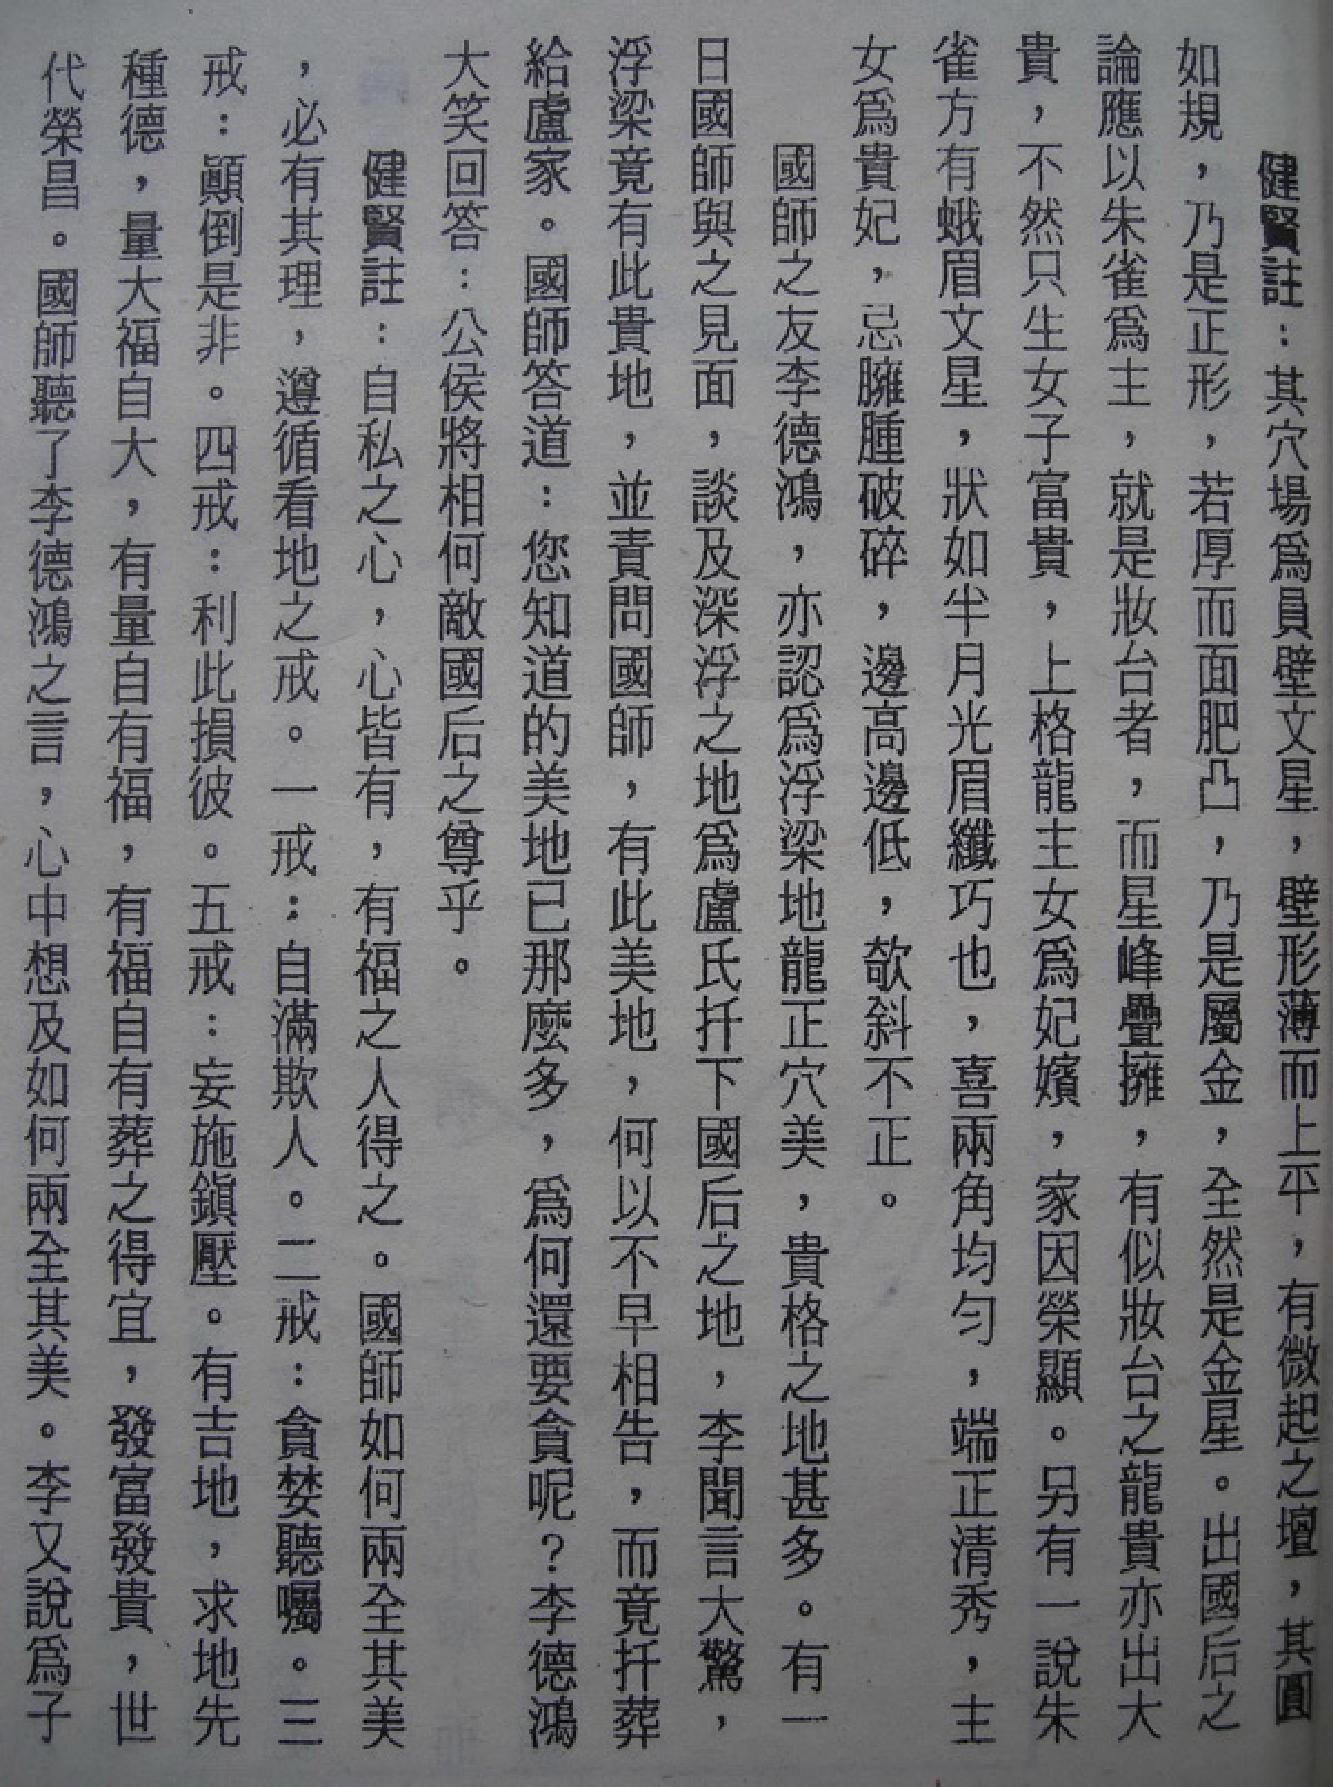 健賢註：其穴場爲員壁文星，壁形薄而上平，有微起之壇，其圓
如規，乃是正形，若厚而面肥凸，乃是屬金，全然是金星。出國后之
論應以朱雀爲主，就是妝台者，而星峰疊擁，有似妝台之龍貴亦出大
貴，不然只生女子富貴，上格龍主女爲妃嬪，家因榮顯。另有一說朱
雀方有蛾眉文星，狀如半月光眉纖巧也，喜兩角均勻，端正清秀，主
女爲貴妃，忌臃腫破碎，邊高邊低，欹斜不正。
國師之友李德鴻，亦認爲浮梁地龍正穴美，貴格之地甚多。有一
日國師與之見面，談及深浮之地爲盧氏扦下國后之地，李聞言大驚，
浮梁竟有此貴地，並責問國師，有此美地，何以不早相告，而竟扦葬
給盧家。國師答道：您知道的美地已那麼多，爲何還要貪呢？李德鴻
大笑回答：公侯將相何敵國后之尊乎。
健賢註：自私之心，心皆有，有福之人得之。國師如何兩全其美
，必有其理，遵循看地之戒。一戒：自滿欺人。二戒：貪婪聽囑。三
戒：顚倒是非。四戒：利此損彼。五戒：妄施鎭壓。有吉地，求地先
種德，量大福自大，有量自有福，有福自有葬之得宜，發富發貴，世
代榮昌。國師聽了李德鴻之言，心中想及如何兩全其美。李又說爲子